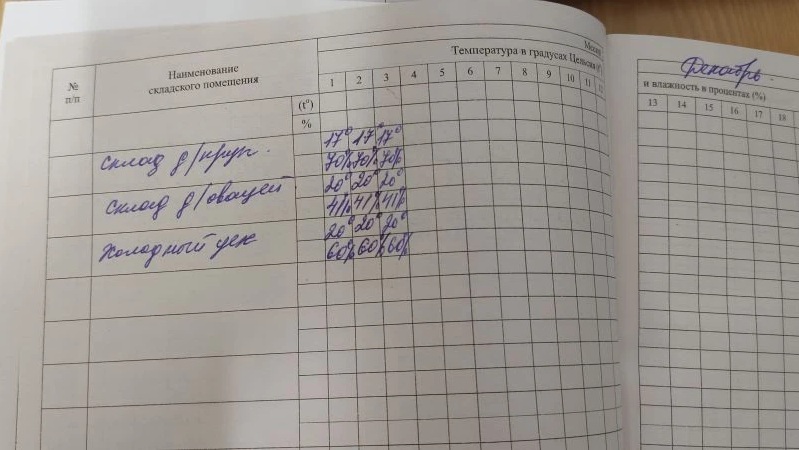 Месяц
Декабрь
Температура в градусах Цельсия
и влажность в процентах (%)
№ п/п
Наименование складского помещения
1 2 3 4 5 6 7 8 9 10 11 12
13 14 15 16 17 18
(t°)
%
17° 17° 17°
склад д/круп.
70% 70% 70%
20° 20° 20°
склад д/овощей
41% 41% 41%
20° 20° 20°
Холодный цех
60% 60% 60%